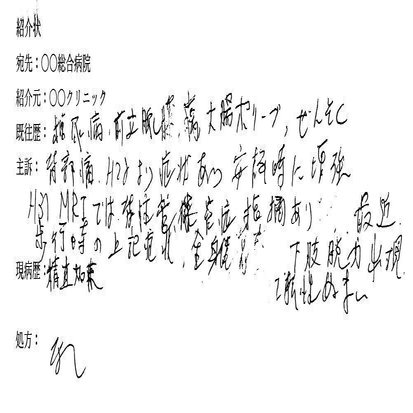 紹介状
宛先：〇〇総合病院
紹介元：〇〇クリニック
既往歴：糖尿病、前立腺 大腸ポリープ、ぜんそく
主訴：背部痛、H28より症状あり 安静時に増強
H29 MRIでは 脊柱管狭窄症指摘あり 最近
歩行時の上記症状、全身 下肢脱力出現
現病歴：精査加療 めまい
処方：
なし